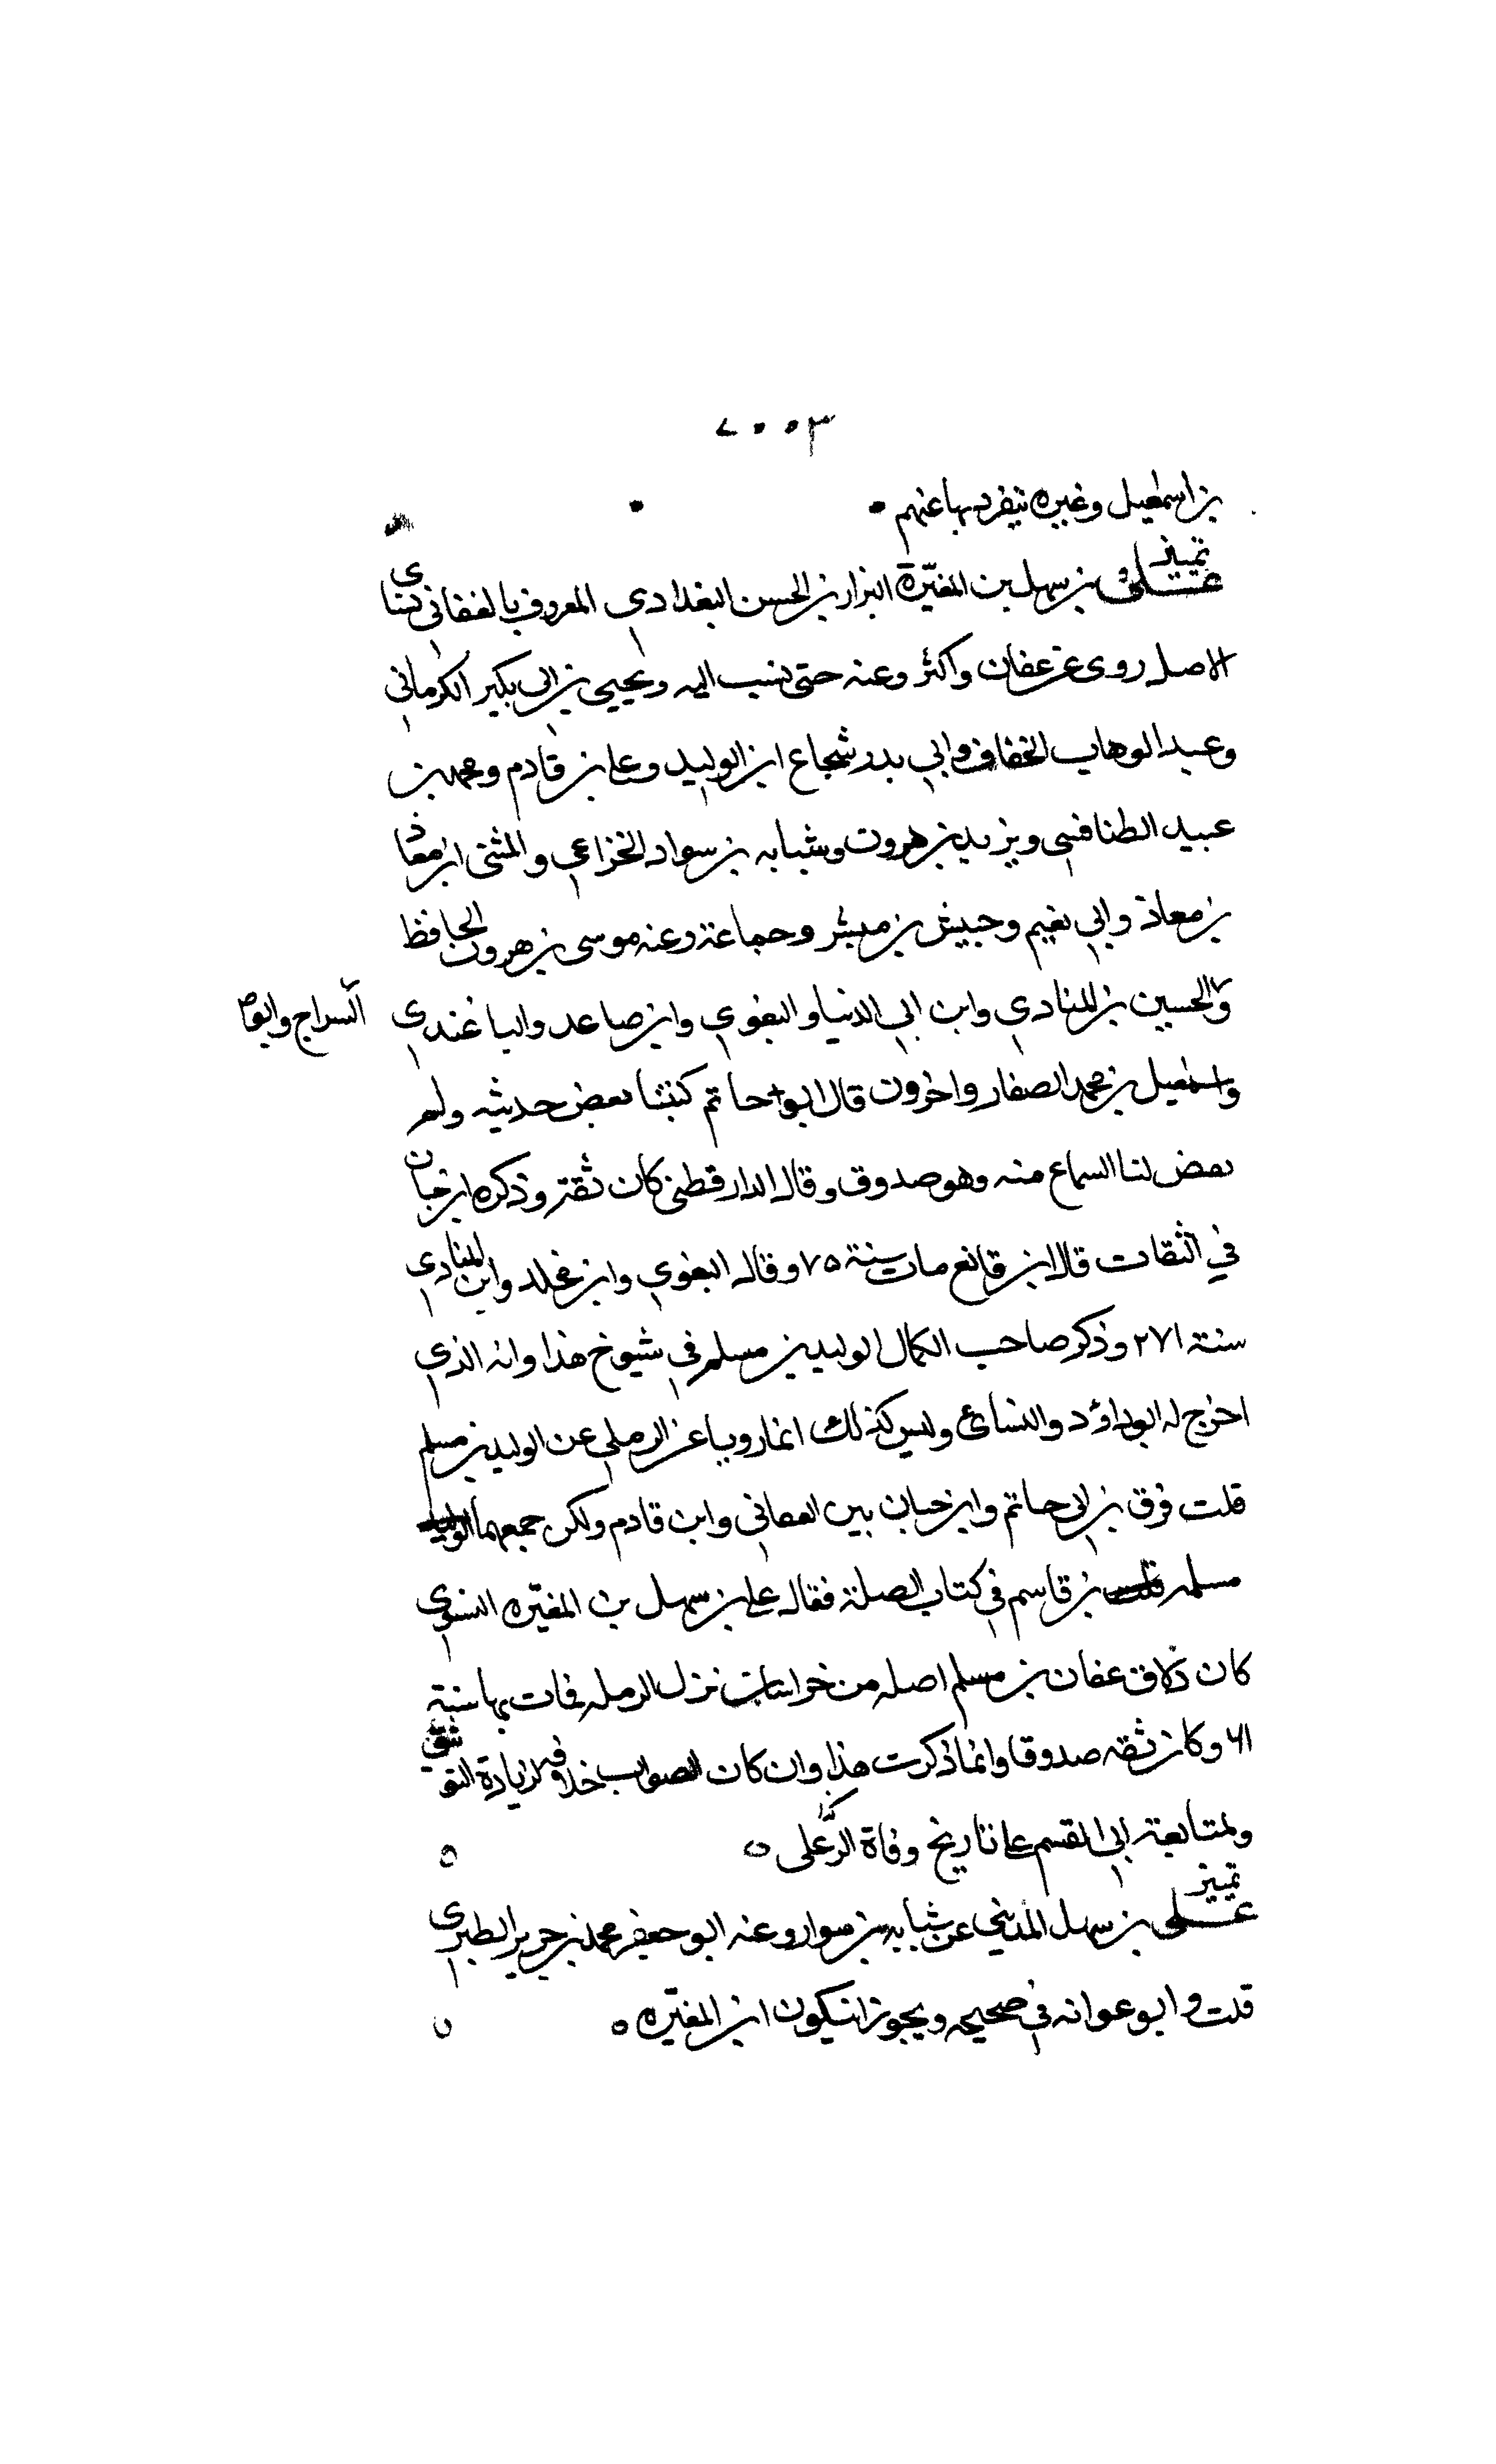 بن اسمعيل وغيره يتفرد بها عنهم
تمييز
علي بن سهل بن المغيرة البزار بن الحسن البغدادي المعروف بالعفاني نسائي
الاصل روى عن عفان واكثر وعنه حتى نسب اليه ويحيى بن ابي بكير الكرماني
وعبد الوهاب الخفاف وابي بدر شجاع ابن الوليد وعلي بن قادم ومحمد بن
عبيد الطنافسي ويزيد بن هرون وشبابه بن سواد الخزاعي والمثنى ابن معاذ
بن معاذ وابي نعيم وحبيش بن مبشر وجماعة وعنه موسى بن هرون الحافظ
والحسين بن المنادي وابن ابي الدنيا والبغوي وابن صاعد والباغندي
السراج
واسمعيل بن محمد الصفار واخرون قال ابو حاتم كتبنا بعض حديثه ولم
بعض لنا السماع منه وهو صدوق وقال الدارقطني كان ثقة وذكره ابن حبان
في الثقات قال ابن قانع مات سنة ٧٥ وقال البغوي وابن مخلد وابن المنادي
سنة ٢٧١ وذكر صاحب الكمال الوليد بن مسلم في شيوخ هذا وانه الذي
اخرج له ابو داؤد والنسائي وليس كذلك انما رويا عن الرملي عن الوليد بن مسلم
قلت فرق بن ابي حاتم وابن حبان بين العفاني وابن قادم ولكن جمعهما
مسلمه بن قاسم في كتاب الصلة فقال علي بن سهل بن المغيره النسوي
كان عفان بن مسلم اصله من خراسان نزل الرمله فمات بها سنة
وكان ثقه صدوقا وانما ذكرت هذا وان كان الصواب خلافه لزيادة التوثيق
ولمتابعة ابي القسم على تاريخ وفاة
تمييز
علي بن سهل المديني عن شبابه بن سوار وعنه ابو جعفر محمد بن جرير الطبري
قلت وابو عوانه في صحيحه ويجوز ان يكون ابن المغيره